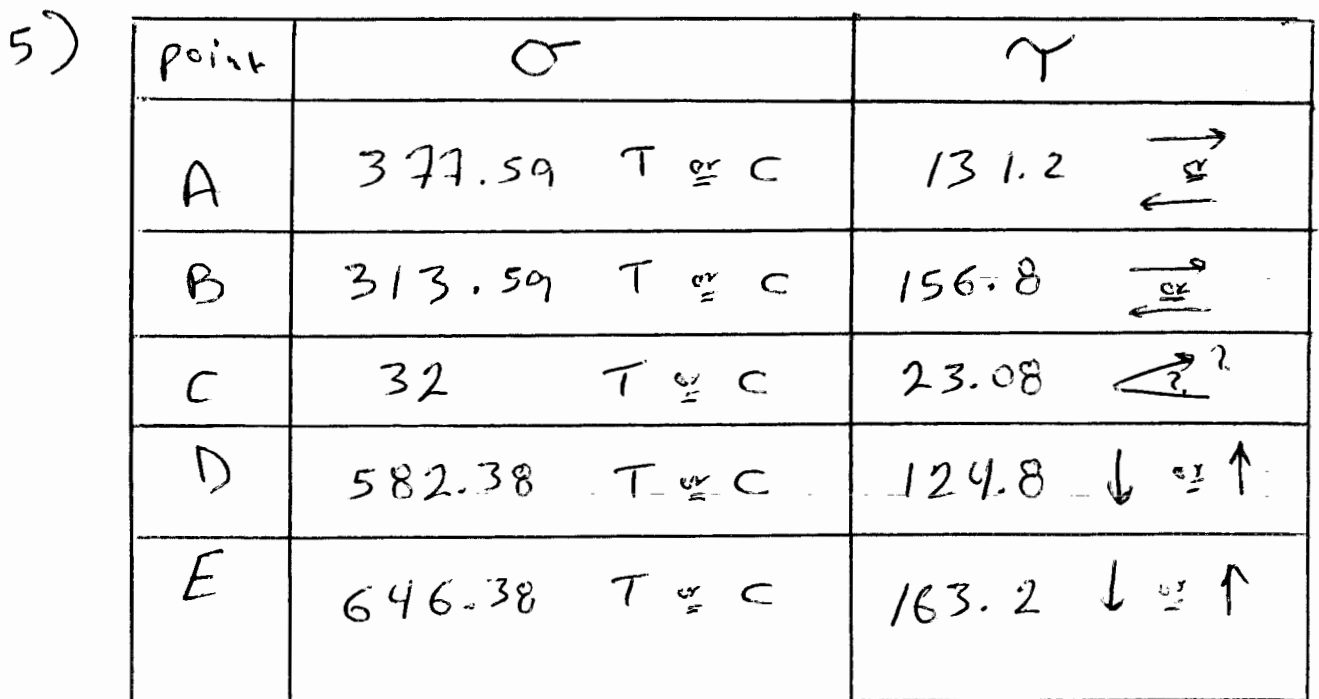 5)
point σ τ
A 377.59 T or C 131.2 → or ←
B 313.59 T or C 156.8 → or ←
C 32 T or C 23.08 ? ?
D 582.38 T or C 124.8 ↓ or ↑
E 646.38 T or C 163.2 ↓ or ↑